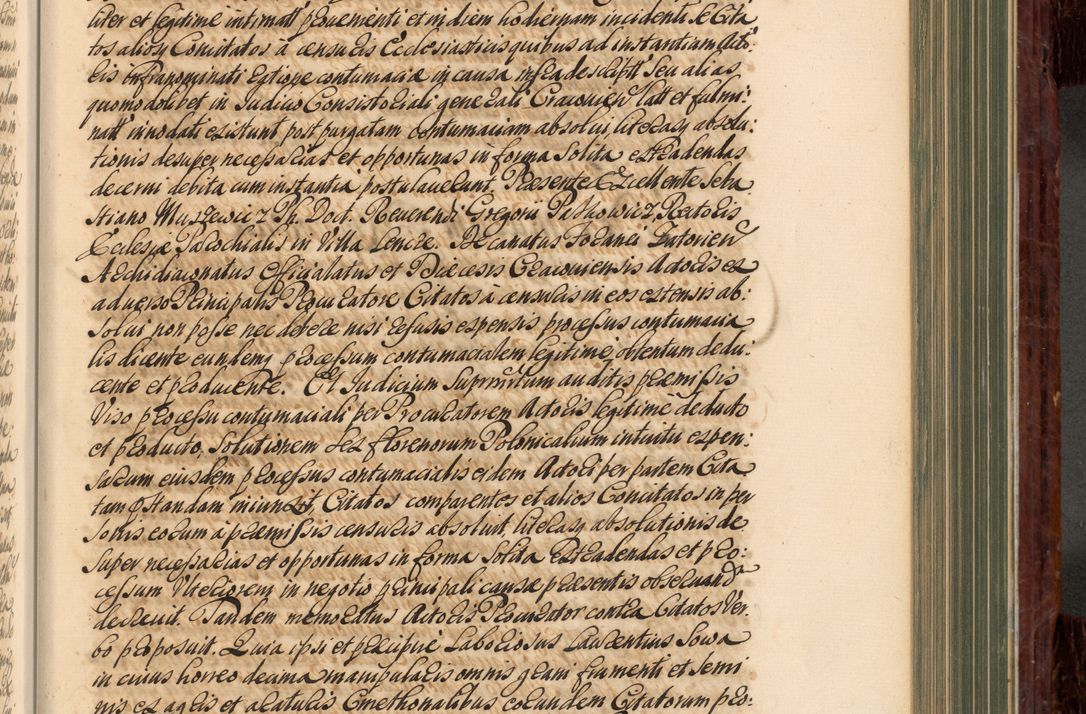 liter et legitime intimatt provenienti et in diem hodiernam incidenti se Cita
tos alios Concitatos a censuris Ecclesiasticis quibus ad instantiam Acto:
ris infranominati ratione contumaciæ in causa infra descriptt seu alias
quomodolibet in Iudicio Consistoriali generali Cracovien latt et fulmi:
natt innodati existunt post purgatam contumaciam absolui, literasq absolu:
tionis desuper necessarias et opportunas in forma solita extradendas
decerni debita cum instantia postulaverunt. Præsente Excellente Seba
stiano Muszewicz Ph. Doct. Reverendi Gregorii Paszkowicz, Rectoris
Ecclesiæ Parochialis in Villa Lencze. Decanatus Foranei Zatorien
Archidiaconatus Officialatus et Diæcesis Cracouiensis Actoris ex
adverso Principalis Procuratore Citatos à censuris in eos extensis ab:
solui non posse nec debere nisi refusis expensis processus contumacia
lis dicente eundemq processum contumacialem legitime obtentum dedu:
cente et producente. Et Iudicium Suprmittum auditis præmissis
Viso processu contumaciali per Procuratorem Actoris legitimè deducto
et producto, solutionem sex florenorum Polonicalium intuitu expen:
sarum eiusdem processus contumacialis eidem Actori per partem Cita
tam præstandam iniunxit, Citatos comparentes et alios Concitatos in per
sonis eorum a præmissis censuris absoluit, literasq absolutionis de
super necessarias et opportunas in forma solita extradendas et pro:
cessum Vlteriorem in negotio principali causæ præsentis observand
decrevit. Tandem memoratus Actoris Procurator contra Citatos Ver
bo proposuit. Quia ipsi et præcipue Laboriosus Laurentius Sowa
in cuius horreo decima manipularis omnis grani frumenti et semi
nis ex agris et araturis Cmethonalibus eorundem Citatorum pro: